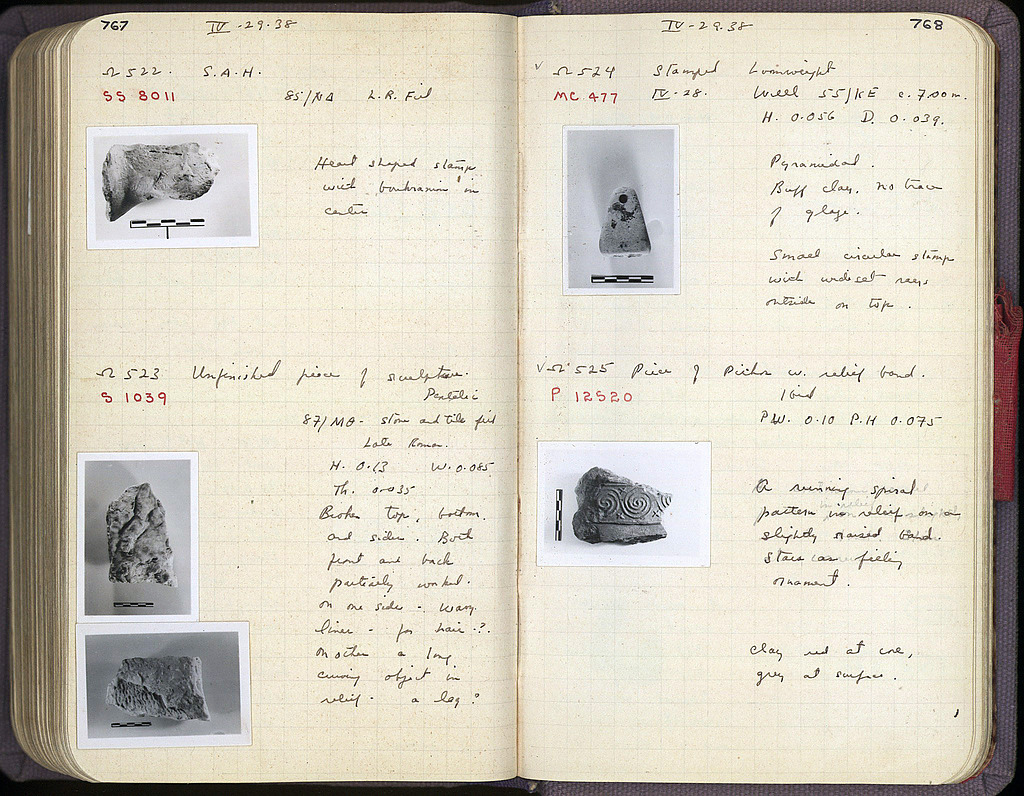 767
IV - 29.38
Ω 522. S.A.H.
SS 8011
85/ΝΔ L.R. Fill
Heart shaped stamp
with boukranion in
center
Ω 523 Unfinished piece of sculpture.
S 1039
Pentelic
87/ΜΘ - stone and tile fill
Late Roman.
H. 0.13 W. 0.085
Th. 0.035
Broken top, bottom,
and sides. Both
front and back
partially worked.
on one side - wavy
lines - for hair?
On other a long
curving object in
relief - a leg?
768
IV - 29.38
√ Ω 524 Stamped Loomweight
MC 477 IV-28. Well 55/ΚΕ c. 7.00 m.
H. 0.056 D. 0.039.
Pyramidal.
Buff clay, no trace
of glaze.
Small circular stamp
with wide set rays
outside on top.
√ Ω 525 Piece of Pithos w. relief band.
P 12520
Ibid
P.W. 0.10 P.H 0.075
A running spiral
pattern in relief on a
slightly raised band.
Stars as filling
ornament.
Clay red at core,
grey at surface.